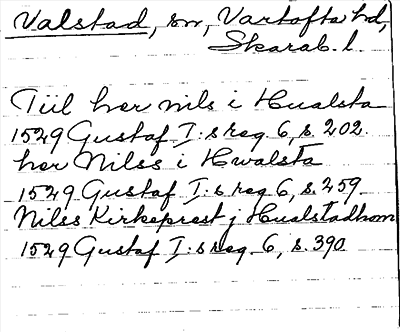 Valstad, sn, Vartofta hd,
Skarab. l.
Till her nils i Hualsta
1529 Gustaf I:s reg 6, s. 202.
her Nilss i Hwalsta
1529 Gustaf I:s reg 6, s. 259
Nilss Kirkeprest j Hualstadhom
1529 Gustaf I:s reg. 6, s. 390